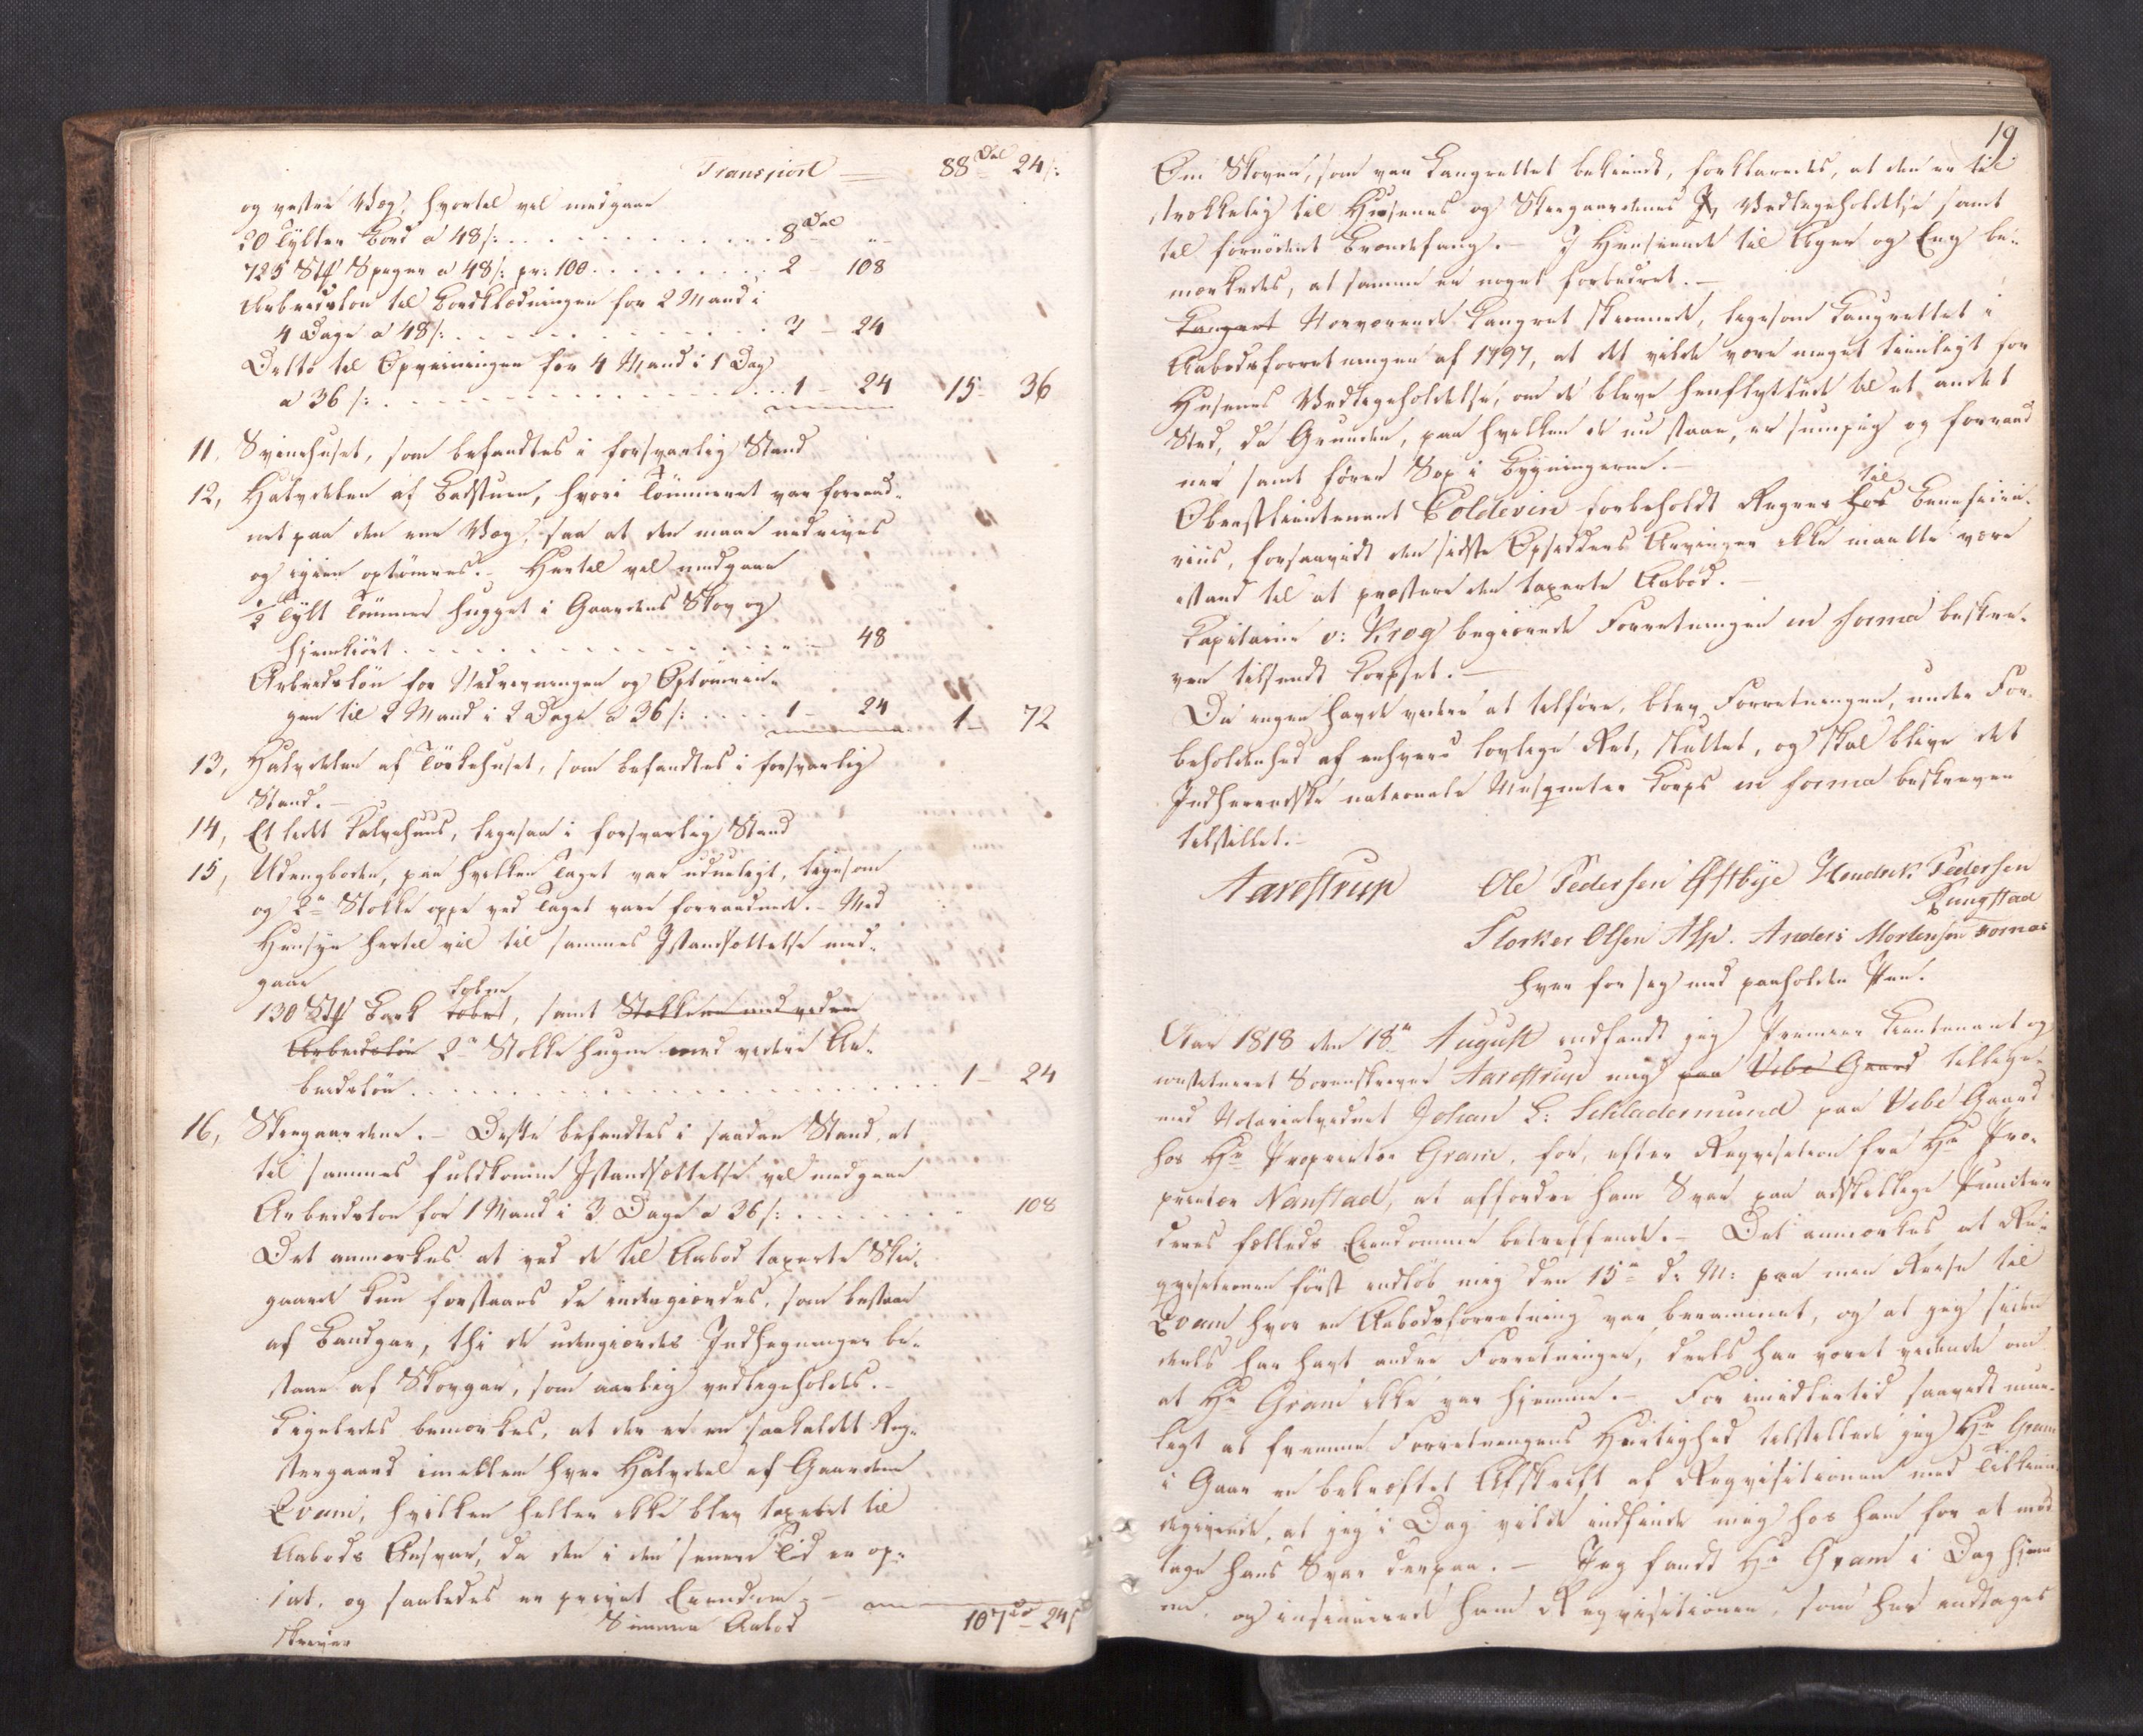 Transport — 88 Dal 24 s:
og vestre Væg, hvortil vil medgaae
20 Tylter Bord a 48 s: . . . . 8 Dal „ -
725 Stk Speger a 48 s: pr: 100 . . . . 2 - 108
Arbeidsløn til Bordklædningen for 2 Mand i
4 Dage a 48 s: . . . . 3 - 24
Ditto til Opveiningen for 4 Mand i 1 Dag
a 36 s: . . . . 1 - 24 15 - 36
11, Svinehuset, som befandtes i forsvarlig Stand
12, Halvdelen af Badstuen, hvori Tømmeret var forraad-
net paa den ene Væg, saa at den maae nedrives
og igien optømres. - Hertil vil medgaae
½ Tylt Tømmer hugget i Gaardens Skov og
hjemkiørt . . . . „ - 48
Arbeidsløn for Nedrivningen og Optømrin-
gen til 2 Mand i 2 Dage a 36 s: . . . . 1 - 24 1 - 72
13, Halvdelen af Tørkehuset, som befandtes i forsvarlig
Stand. —
14, Et lidet Kalvehuus, ligesaa i forsvarlig Stand
15, Udengboden, paa hvilken Taget var udueligt, ligesom
og 2de Stokke oppe ved Taget vare forraadnede. - Med
Hensyn hertil vil til sammes Istandsættelse med-
gaae
130 Stk Bark tobet, toben samt Stokkene med videre
Arbeidsløn 2de Stokke hugne med videre Ar-
beidsløn . . . . 1 - 24
16, Skeegaardene. - Disse befandtes i saadan Stand, at
til sammes fuldkomne Istandsættelse vil medgaae
Arbeidsløn for 1 Mand i 3 Dage a 36 s: . . . . - 108
Det anmærkes at ved de til Aabod taxerte Skie-
gaarde kun forstaaes de indengiærdes, som bestaae
af Bandgar, thi de udengiærdes Indhegninger be-
staae af Skovgar, som aarlig vedligeholdes. -
Ligeledes bemærkes, at der er en saakaldet Rag-
stergaard imellem hver Halvdel af Gaarden
Qvam, hvilken heller ikke blev taxeret til
Aabods Ansvar, da den i den senere Tid er op-
sat, og saaledes er privat Eiendom. -
skriver Summa Aabod 107 Dr 24 s
19
Om Skoven, som var Laugrettet bekiendt, forklaredes, at den er til
strækkelig til Husenes og Skeegaardenes Vedligeholdelse samt
til fornødent Brændefang. - I Henseende til Ager og Eng be-
mærkedes, at samme er noget forbedret. —
Laugret Nærværende Laugret skiønnede, ligesom Laugrettet i
Aabodsforretningen af 1797, at det vilde være meget tienligt for
Husenes Vedligeholdelse, om de bleve henflyttede til et andet
Sted, da Grunden, paa hvilken de nu staae, er sumpig og forraad
ner samt fører Sop i Bygningerne. —
Oberstlieutenant Coldevin forbeholdt Regres hos til Beneficia-
rius, forsaavidt den sidste Opsidders Arvinger ikke maatte være
istand til at præstere den taxerte Aabod. —
Capitaine v: Krog begiærede Forretningen in forma beskre-
ven tilsendt Corpset. —
Da ingen havde videre at tilføre, blev Forretningen, under For-
beholdenhed af enhvers lovlige Ret, sluttet, og skal blive det
Indherredske nationale Musqueteer Corps in forma beskreven
tilstillet. -
Aarestrup Ole Pedersen Østbye Hendrik Pedersen
Rungstad
Storker Olsen Asp. Anders Mortensen Fornæs
hver for sig med paaholden Pen.
Aar 1818 den 18de August indfandt jeg Premier Lieutenant og
constitueret Sorenskriver Aarestrup mig paa Vibe Gaard tillige-
med Notarialvidnet Johan L: Schladermund paa Vibe Gaard
hos Hr Proprietær Gram, for, efter Reqvisition fra Hr Pro-
prietær Nanstad, at affordre ham Svar paa adskillige Puncter
deres fælleds Eiendomme betreffende. - Det anmærkes at Re-
qvisitionen først indløb mig den 15de d: M: paa min Reise til
Qvam hvor en Aabodsforretning var berammet, og at jeg siden
deels har havt andre Forretninger, deels har været vidende om
at Hr Gram ikke var hjemme. - For imidlertid saavidt mue-
ligt at fremme Forretningens Hurtighed tilstillede jeg Hr Gram
i Gaar en bekræftet Afskrift af Reqvisitionen med Tilkien-
degivende, at jeg i Dag vilde indfinde mig hos ham for at mod
tage hans Svar derpaa. - Jeg fandt Hr Gram i Dag hjem
me, og insinuerede ham Reqvisitionen, som her indtages